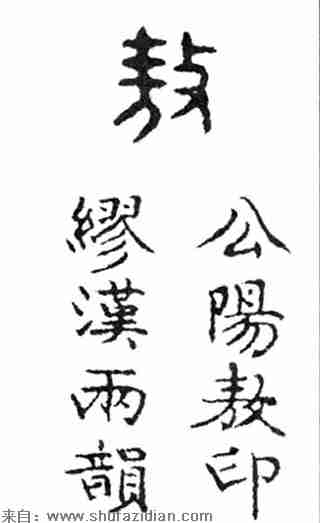 敖
公陽敖印
繆漢兩韻
来自：www.shufazidian.com